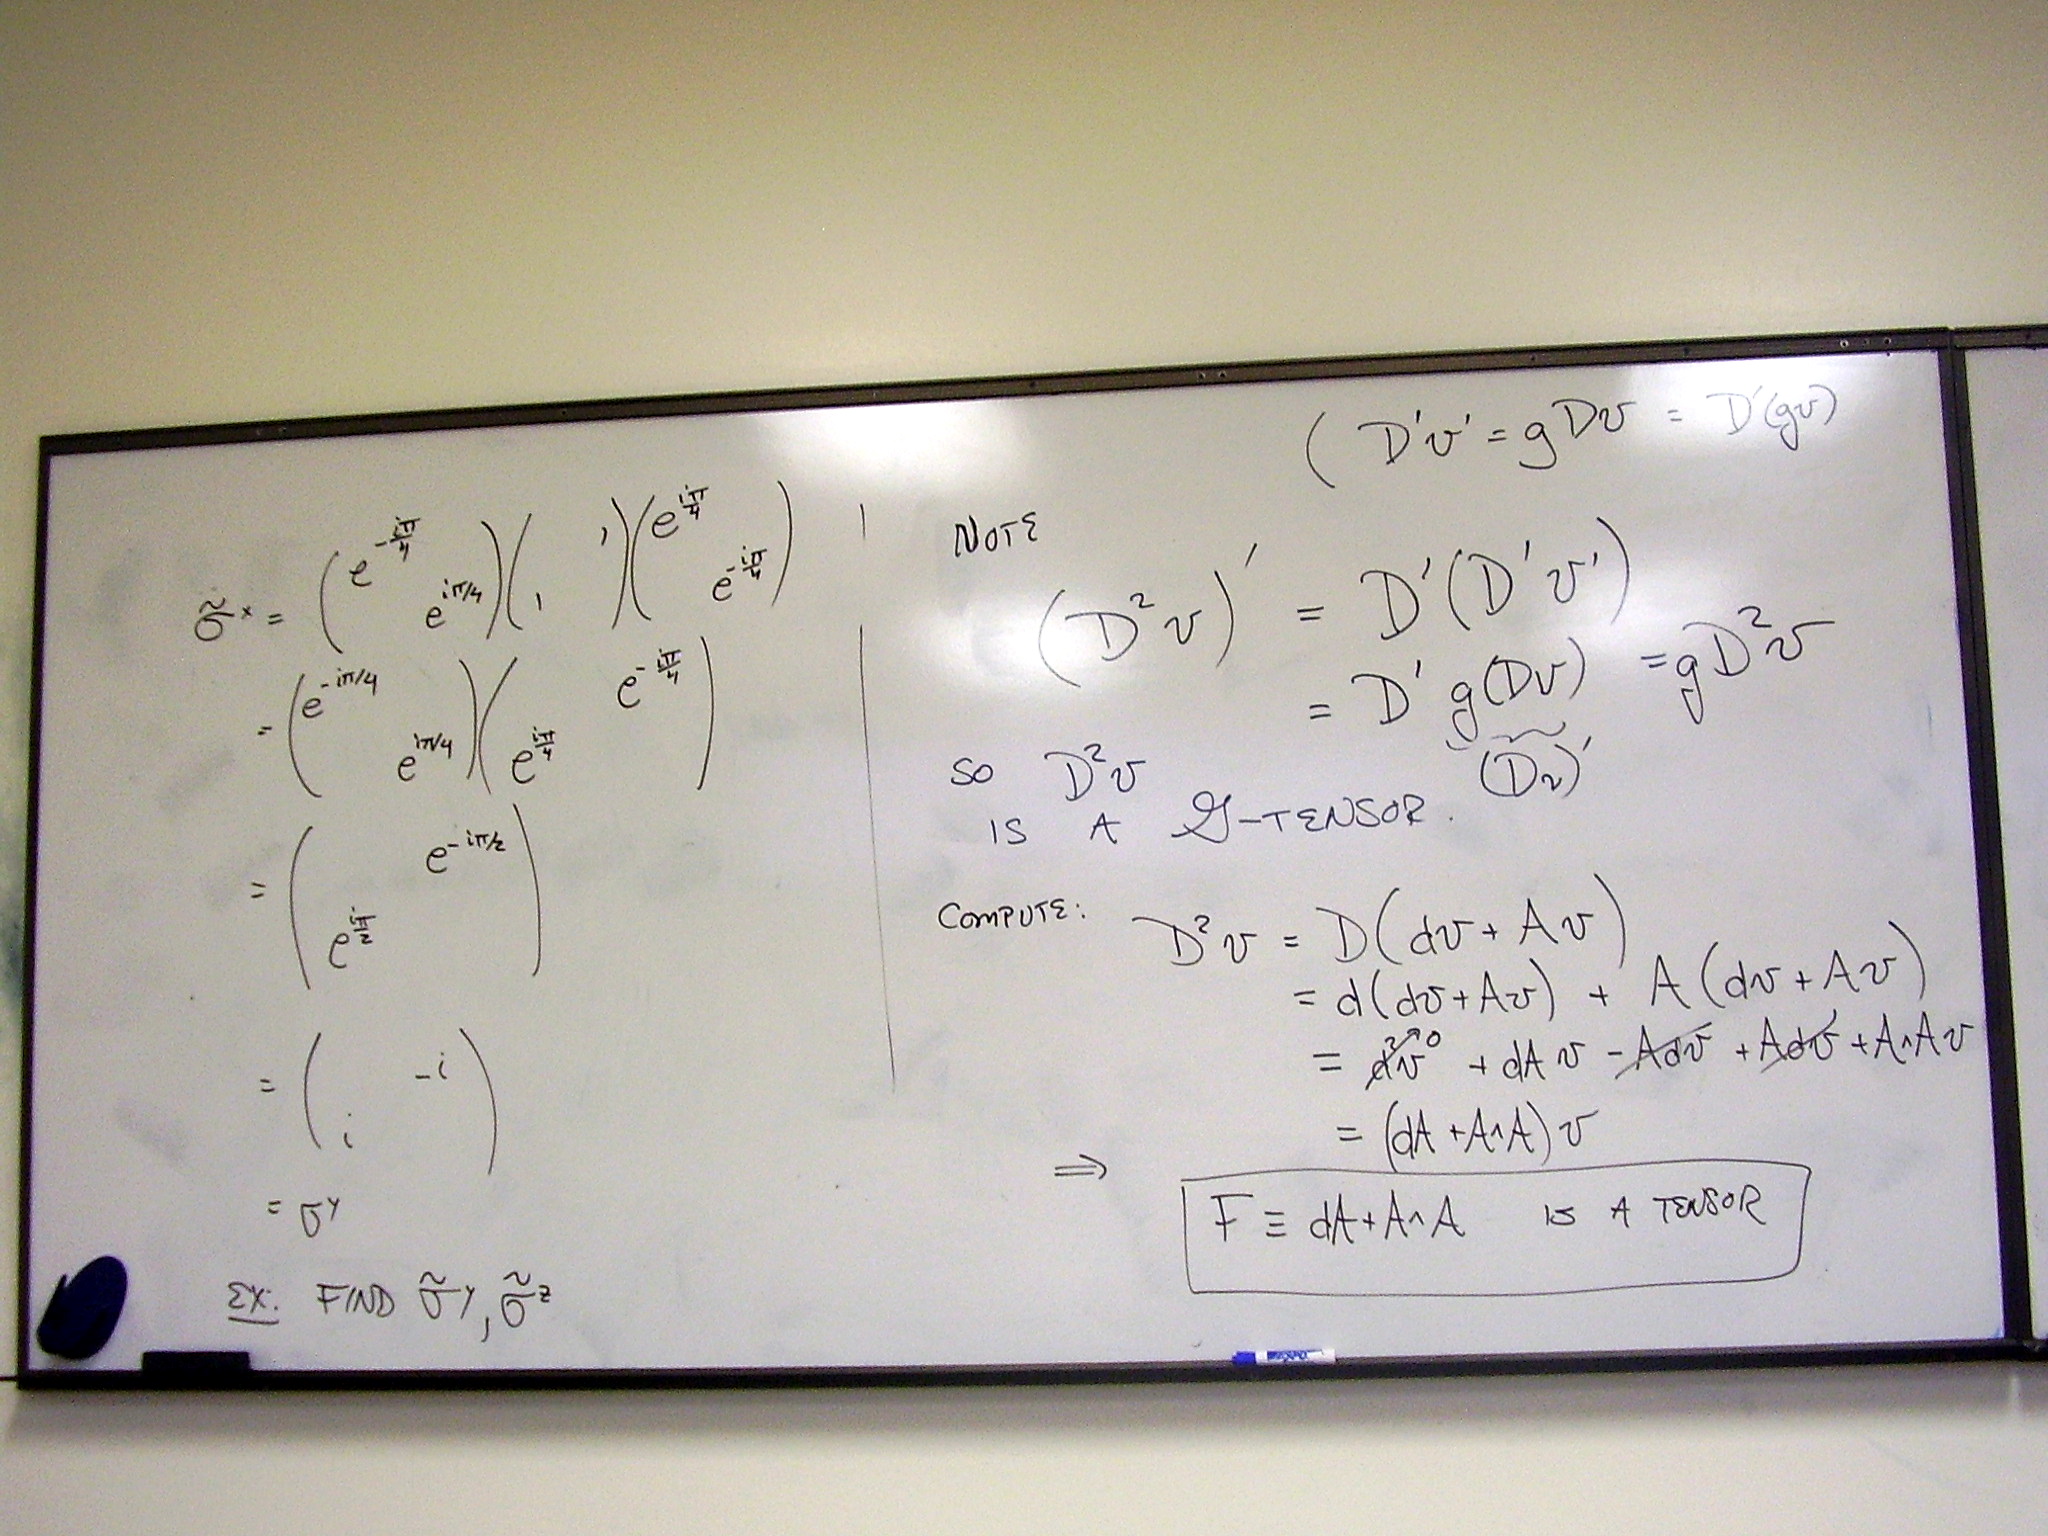 σ̃ˣ = ( e^{-iπ/4}   e^{iπ/4} ) ( 1   1 ) ( e^{iπ/4}   e^{-iπ/4} )
= ( e^{-iπ/4}   e^{iπ/4} ) ( e^{-iπ/4}   e^{iπ/4} )
= ( e^{-iπ/2}   e^{iπ/2} )
= ( -i   i )
= σ^y
EX: FIND σ̃^y, σ̃^z
( D'v' = g Dv = D'(gv)
NOTE
(D²v)' = D'(D'v')
= D' g(Dv) = gD²v
(Dv)'
SO D²v
IS A G-TENSOR.
COMPUTE: D²v = D(dv + Av)
= d(dv + Av) + A(dv + Av)
= d²v→0 + dA v - Adv + Adv + A∧Av
= (dA + A∧A) v
⇒ F ≡ dA + A∧A IS A TENSOR